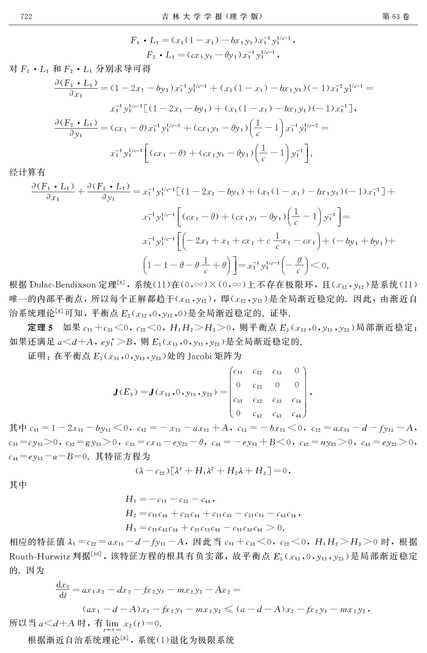 722 吉 林 大 学 学 报 (理 学 版) 第 63 卷
F₁ • L₁ = (x₁(1 − x₁) − bx₁y₁)x₁⁻¹y₁^{1/c−1},
F₂ • L₁ = (cx₁y₁ − θy₁)x₁⁻¹y₁^{1/c−1}.
对 F₁ • L₁ 和 F₂ • L₁ 分别求导可得
∂(F₁ • L₁)/∂x₁ = (1 − 2x₁ − by₁)x₁⁻¹y₁^{1/c−1} + (x₁(1 − x₁) − bx₁y₁)(−1)x₁⁻²y₁^{1/c−1} =
x₁⁻¹y₁^{1/c−1}[(1 − 2x₁ − by₁) + (x₁(1 − x₁) − bx₁y₁)(−1)x₁⁻¹],
∂(F₂ • L₁)/∂y₁ = (cx₁ − θ)x₁⁻¹y₁^{1/c−1} + (cx₁y₁ − θy₁)(1/c − 1)x₁⁻¹y₁^{1/c−2} =
x₁⁻¹y₁^{1/c−1}[(cx₁ − θ) + (cx₁y₁ − θy₁)(1/c − 1)y₁⁻¹].
经计算有
∂(F₁ • L₁)/∂x₁ + ∂(F₂ • L₁)/∂y₁ = x₁⁻¹y₁^{1/c−1}[(1 − 2x₁ − by₁) + (x₁(1 − x₁) − bx₁y₁)(−1)x₁⁻¹] +
x₁⁻¹y₁^{1/c−1}[(cx₁ − θ) + (cx₁y₁ − θy₁)(1/c − 1)y₁⁻¹] =
x₁⁻¹y₁^{1/c−1}[(−2x₁ + x₁ + cx₁ + c 1/c x₁ − cx₁) + (−by₁ + by₁) +
(1 − 1 − θ − θ 1/c + θ)] = x₁⁻¹y₁^{1/c−1}(−θ/c) < 0.
根据 Dulac-Bendixson 定理[9], 系统(11)在(0,∞)×(0,∞)上不存在极限环, 且(x₁₂,y₁₂)是系统(11)
唯一的内部平衡点, 所以每个正解都趋于(x₁₂,y₁₂), 即(x₁₂,y₁₂)是全局渐近稳定的. 因此, 由渐近自
治系统理论[8]可知, 平衡点 E₂(x₁₂,0,y₁₂,0)是全局渐近稳定的. 证毕.
定理 5 如果 c₁₁+c₃₃<0, c₂₂<0, H₁H₂>H₃>0, 则平衡点 E₃(x₁₃,0,y₁₃,y₂₃)局部渐近稳定;
如果还满足 a<d+A, ey₁*>B, 则 E₃(x₁₃,0,y₁₃,y₂₃)是全局渐近稳定的.
证明: 在平衡点 E₃(x₁₃,0,y₁₃,y₂₃)处的 Jacobi 矩阵为
J(E₃) = J(x₁₃,0,y₁₃,y₂₃) =
c₁₁ c₁₂ c₁₃ 0
0 c₂₂ 0 0
c₃₁ c₃₂ c₃₃ c₃₄
0 c₄₂ c₄₃ c₄₄
,
其中 c₁₁=1−2x₁₃−by₁₃<0, c₁₂=−x₁₃−ax₁₃+A, c₁₃=−bx₁₃<0, c₂₂=ax₁₃−d−fy₁₃−A,
c₃₁=cy₁₃>0, c₃₂=gy₁₃>0, c₃₃=cx₁₃−ey₂₃−θ, c₃₄=−ey₁₃+B<0, c₄₂=ny₂₃>0, c₄₃=ey₂₃>0,
c₄₄=ey₁₃−α−B=0. 其特征方程为
(λ−c₂₂)[λ³ + H₁λ² + H₂λ + H₃] = 0,
其中
H₁ = −c₁₁ − c₃₃ − c₄₄,
H₂ = c₁₁c₄₄ + c₃₃c₄₄ + c₁₁c₃₃ − c₃₁c₁₃ − c₄₃c₃₄,
H₃ = c₁₁c₄₃c₃₄ + c₃₁c₁₃c₄₄ − c₁₁c₃₃c₄₄ > 0,
相应的特征值 λ₁=c₂₂=ax₁₃−d−fy₁₃−A, 因此当 c₁₁+c₃₃<0, c₂₂<0, H₁H₂>H₃>0 时, 根据
Routh-Hurwitz 判据[10], 该特征方程的根具有负实部, 故平衡点 E₃(x₁₃,0,y₁₃,y₂₃)是局部渐近稳定
的. 因为
dx₂/dt = ax₁x₂ − dx₂ − fx₂y₁ − mx₂y₂ − Ax₂ =
(ax₁ − d − A)x₂ − fx₂y₁ − mx₂y₂ ≤ (a − d − A)x₂ − fx₂y₁ − mx₂y₂,
所以当 a<d+A 时, 有 lim_{t→+∞} x₂(t)=0.
根据渐近自治系统理论[8], 系统(1)退化为极限系统